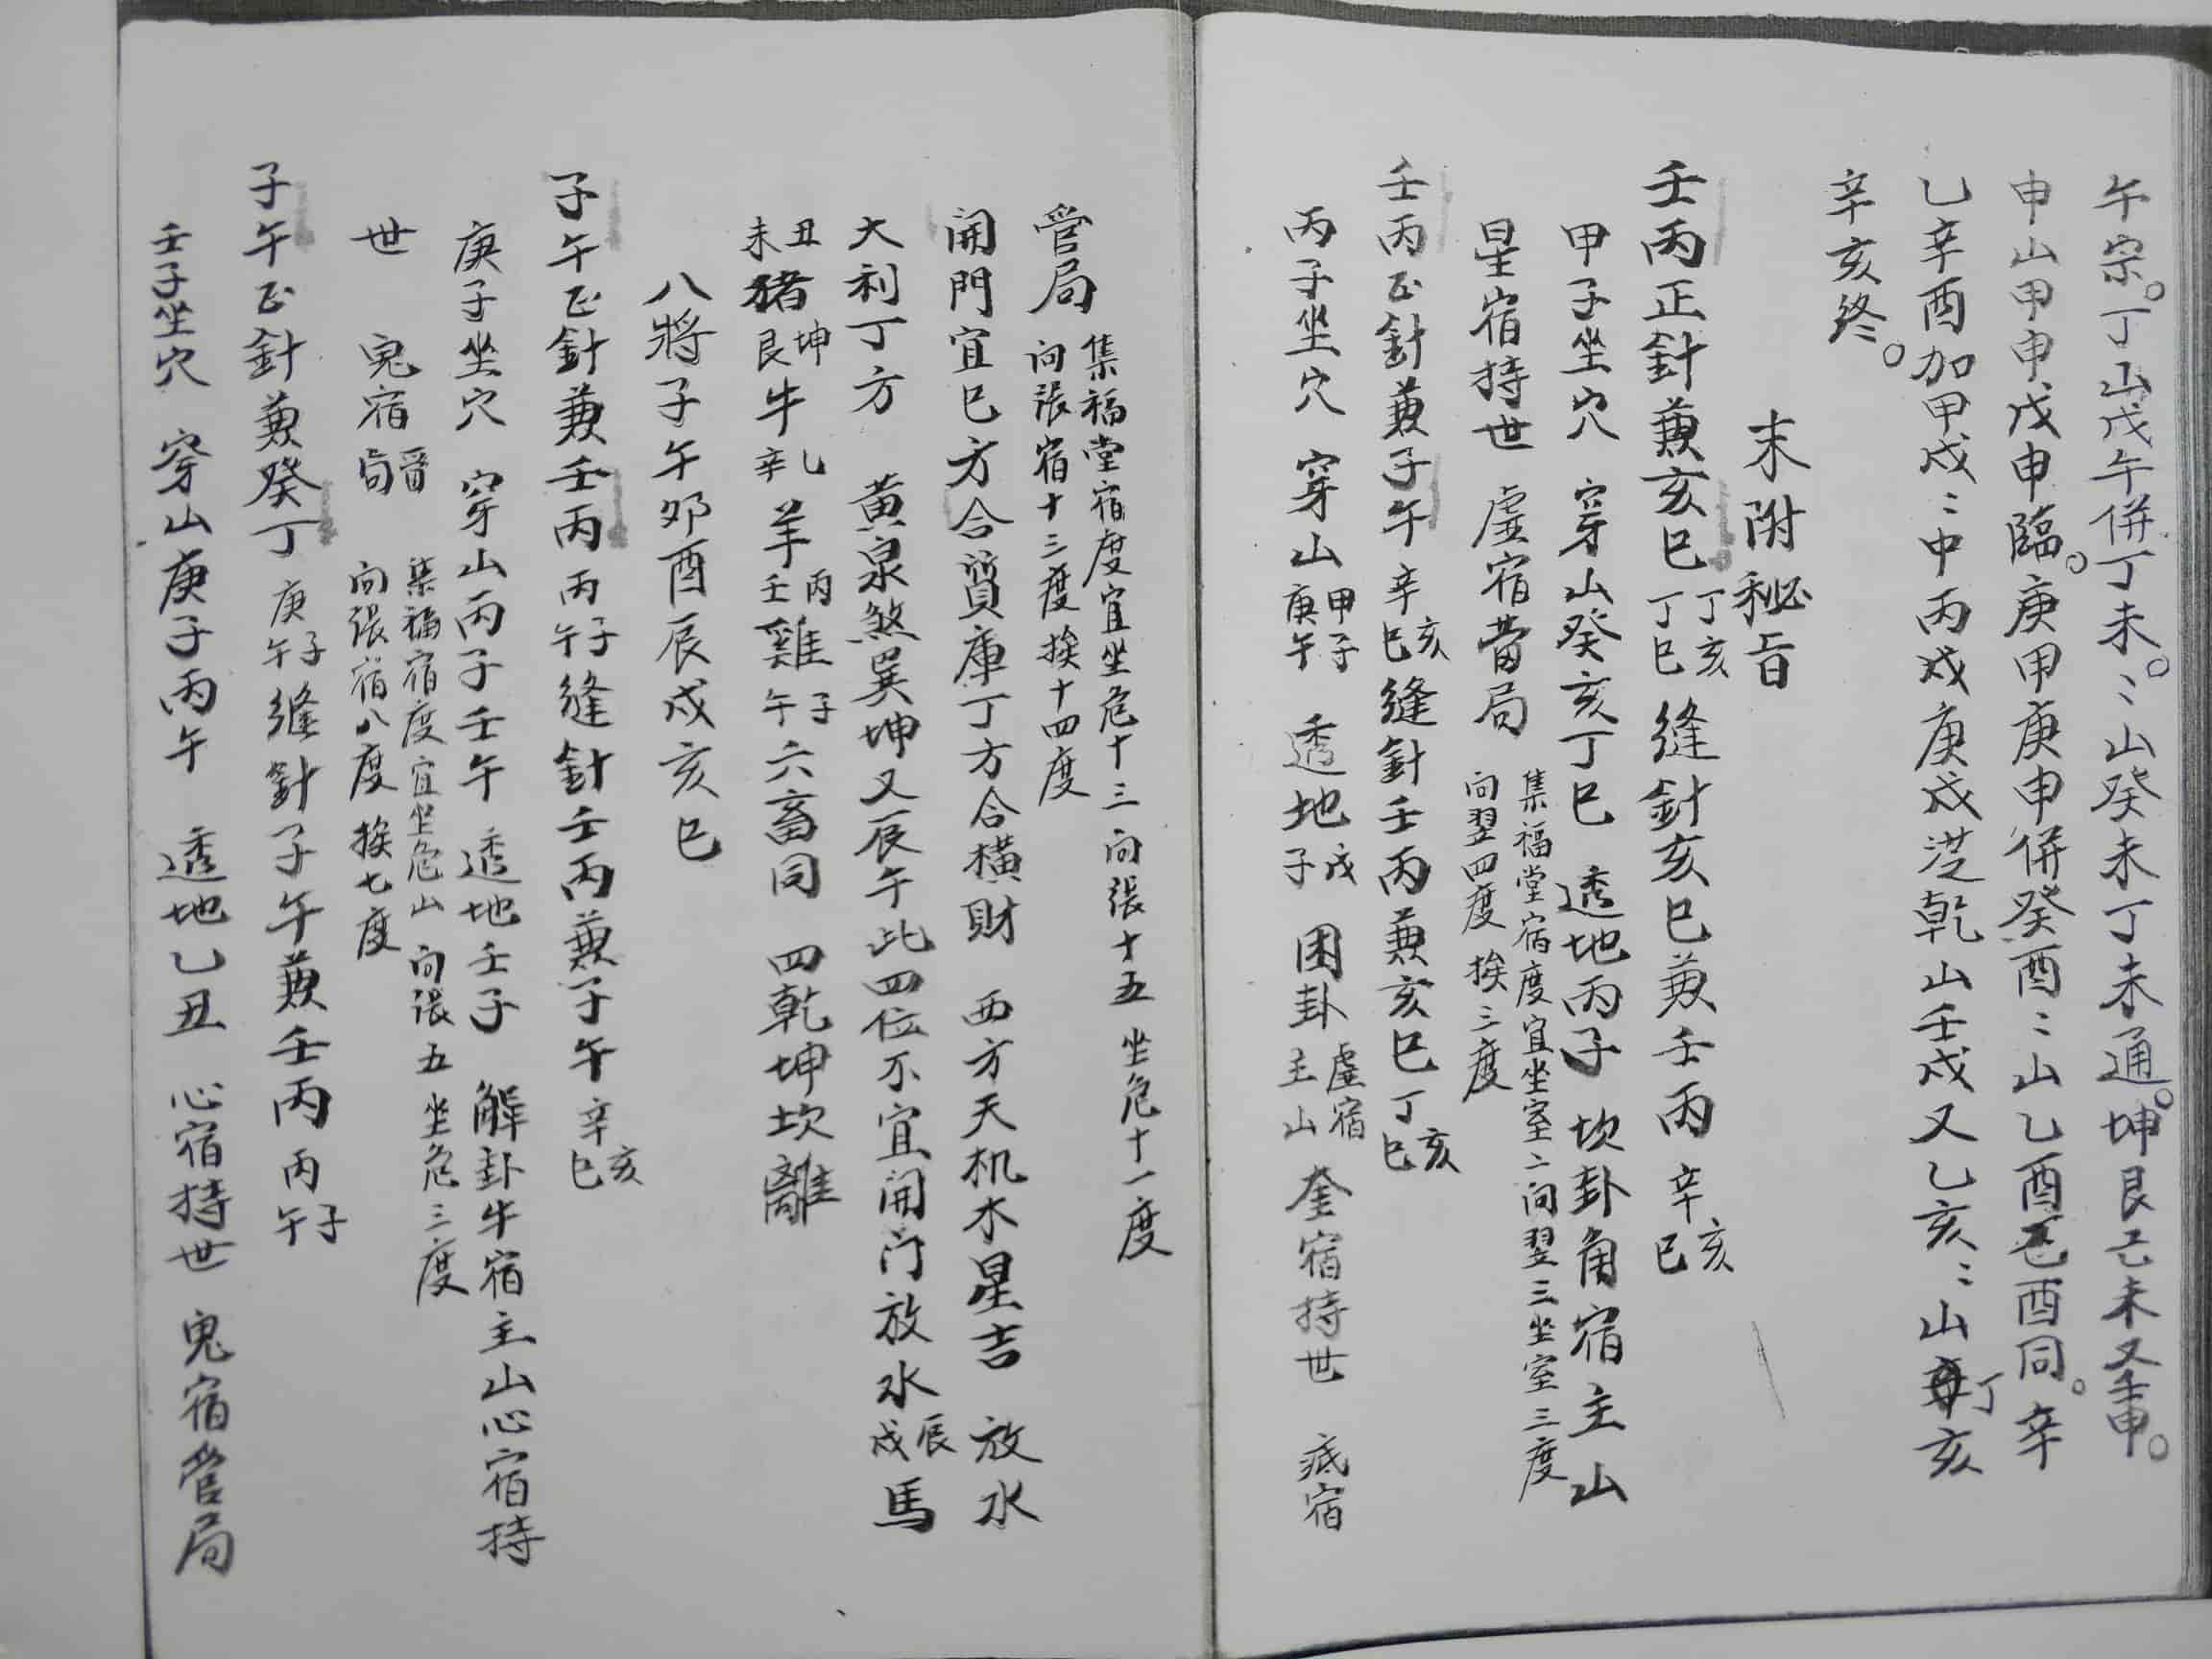 午宗。丁山戊午併丁未。〻山癸未丁未通。坤艮己未又壬申。
申山甲申戊申臨。庚甲庚申併癸酉〻山乙酉酉同。辛
乙辛酉加甲戌〻中丙戌庚戌涖乾山壬戌又乙亥〻山丁亥
辛亥終。
末附秘旨
壬丙正針兼亥巳丁亥丁巳縫針亥巳兼壬丙辛亥巳
甲子坐穴 穿山癸亥丁巳 透地丙子 坎卦角宿主山
星宿持世 虛宿管局 集福堂宿度宜坐室二向翌三坐室三度
向翌四度 挨三度
壬丙正針兼子午辛亥巳縫針壬丙兼亥巳丁亥巳
丙子坐穴 穿山甲子庚午 透地戊子 困卦虛宿主山 奎宿持世 底宿
管局 集福堂宿度宜坐危十三向張十五坐危十一度
向張宿十三度挨十四度
開門宜巳方合質庫丁方合橫財 西方天机木星吉 放水
大利丁方 黃泉煞巽坤又辰午此四位不宜開门放水辰戌馬
丑未猪坤艮牛乙辛羊丙壬雞子午六畜同 四乾坤坎離
八將子午卯酉辰戌亥巳
子午正針兼壬丙丙子午縫針壬丙兼子午辛亥巳
庚子坐穴 穿山丙子壬午 透地壬子 解卦牛宿主山心宿持
世 鬼宿局 集福宿度宜坐危山向張五坐危三度
向張宿八度 挨七度
子午正針兼癸丁庚子午縫針子午兼壬丙丙子午
壬子坐穴 穿山庚子丙午 透地乙丑 心宿持世 鬼宿管局